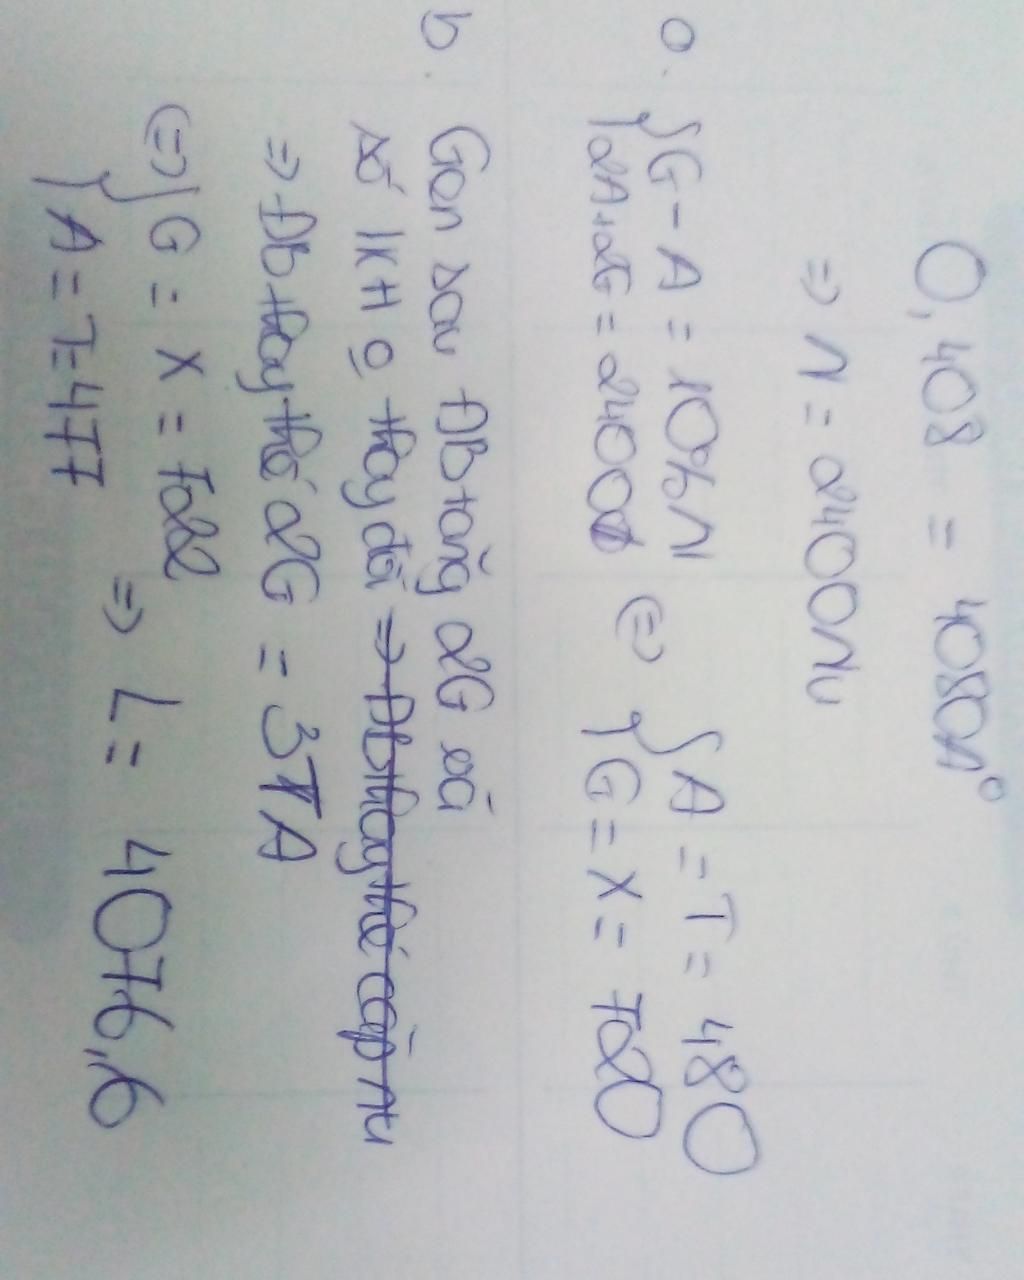 0,408 = 4080A°
=> N = 2400Nu
a. { G - A = 10%N <=> { A = T = 480
{ 2A + 2G = 2400 { G = X = 720
b. Gen sau ĐB tăng 2G và
số lk H o thay đổi => ĐB thay thế cặp Nu
=> ĐB thay thế 2G = 3TA
<=> { G = X = 722
{ A = T = 477 => L = 4076,6